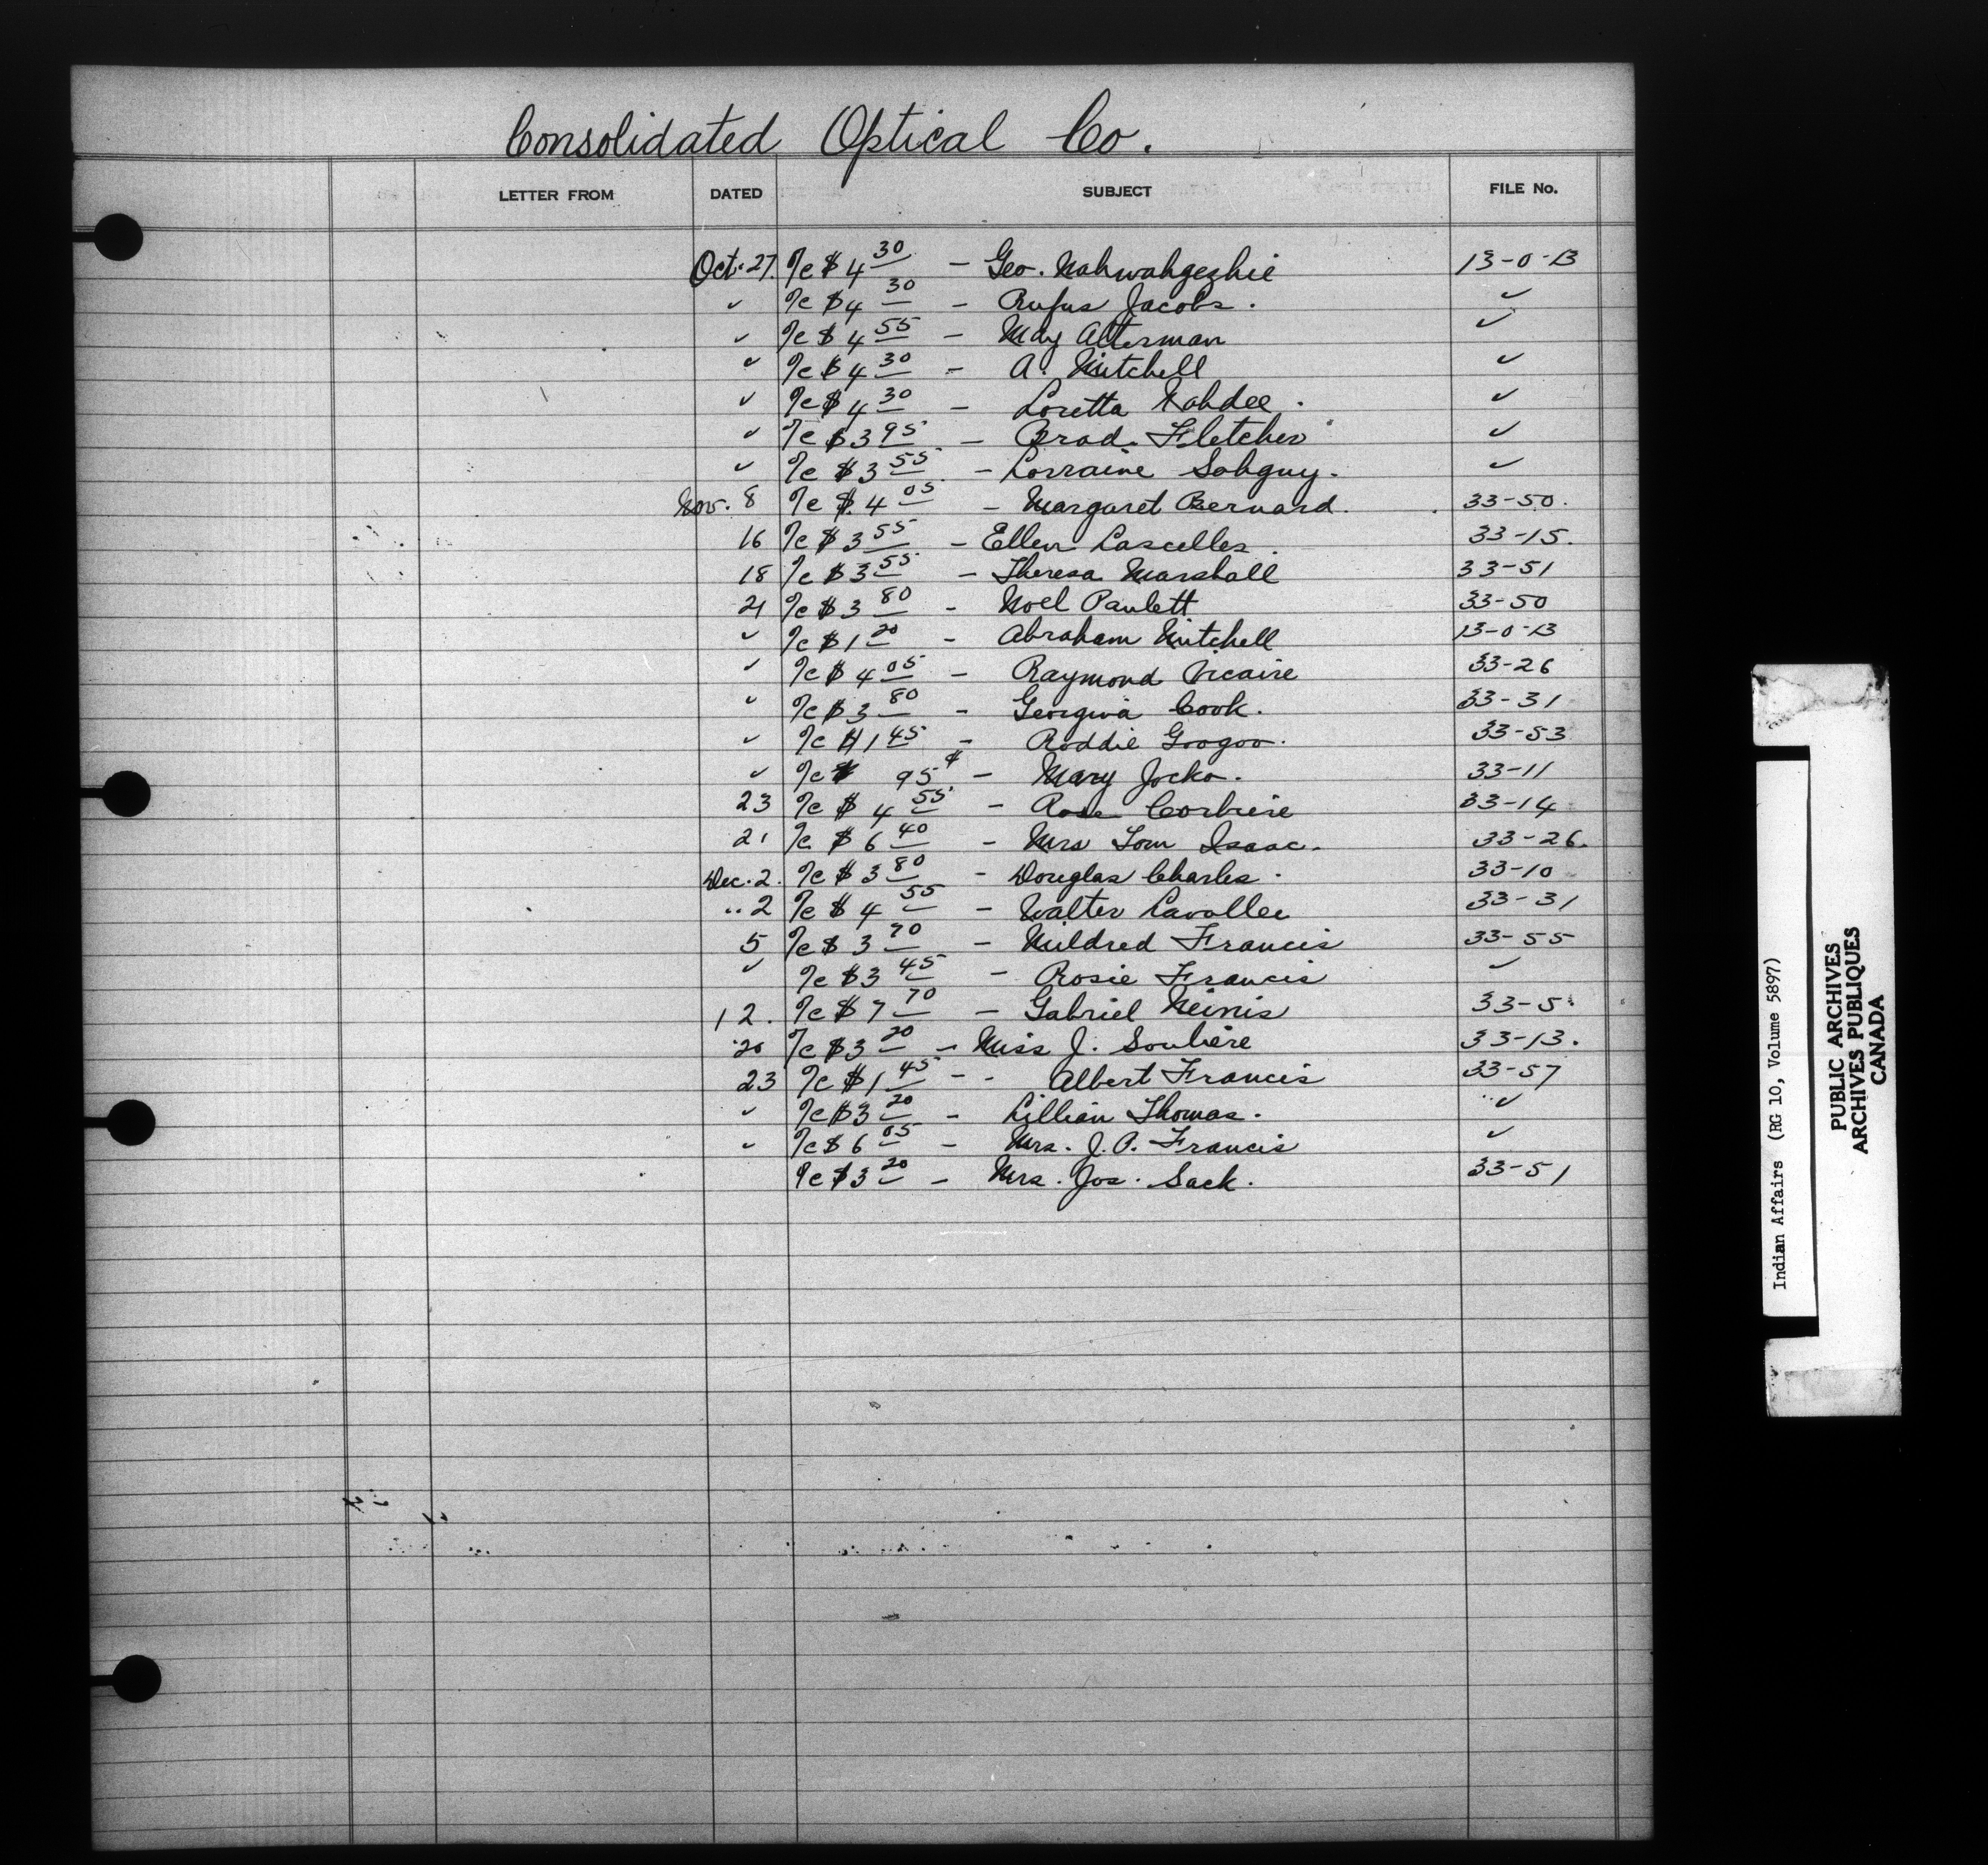 Consolidated Optical Co.
LETTER FROM DATED SUBJECT FILE No.
Oct. 27. %c $4 30 - Geo. Nahwahgezhie 13-0-13
✓ %c $4 30 - Rufus Jacobs. ✓
✓ %c $4 55 - May Alterman ✓
✓ %c $4 30 - A. Mitchell ✓
✓ %c $4 30 - Loretta Nahdee. ✓
✓ %c $3 95 - Brad. Fletcher ✓
✓ %c $3 55 - Lorraine Sohguy. ✓
Nov. 8 %c $4 05 - Margaret Bernard. 33-50.
16 %c $3 55 - Ellen Lascelles. 33-15.
18 %c $3 55 - Theresa Marshall 33-51
21 %c $3 80 - Noel Paulett 33-50
✓ %c $1 20 - Abraham Mitchell 13-0-13
✓ %c $4 05 - Raymond Vicaire 33-26
✓ %c $3 80 - Georgina Cook. 33-31
✓ %c $1 45 - Roddie Googoo. 33-53
✓ %c $ 95¢ - Mary Jocko. 33-11
23 %c $4 55 - Rose Corbiere 33-14
21 %c $6 40 - Mrs Tom Isaac. 33-26.
Dec. 2. %c $3 80 - Douglas Charles. 33-10
" 2 %c $4 55 - Walter Lavallee 33-31
5 %c $3 70 - Mildred Francis 33-55
✓ %c $3 45 - Rosie Francis ✓
12. %c $7 70 - Gabriel Meinis 33-5
20 %c $3 20 - Miss J. Souliere 33-13.
23 %c $1 45 - - Albert Francis 33-57
✓ %c $3 20 - Lillian Thomas. ✓
✓ %c $6 05 - Mrs. J. P. Francis ✓
%c $3 20 - Mrs. Jos. Sack. 33-51
Indian Affairs (RG 10, Volume 5897)
PUBLIC ARCHIVES
ARCHIVES PUBLIQUES
CANADA